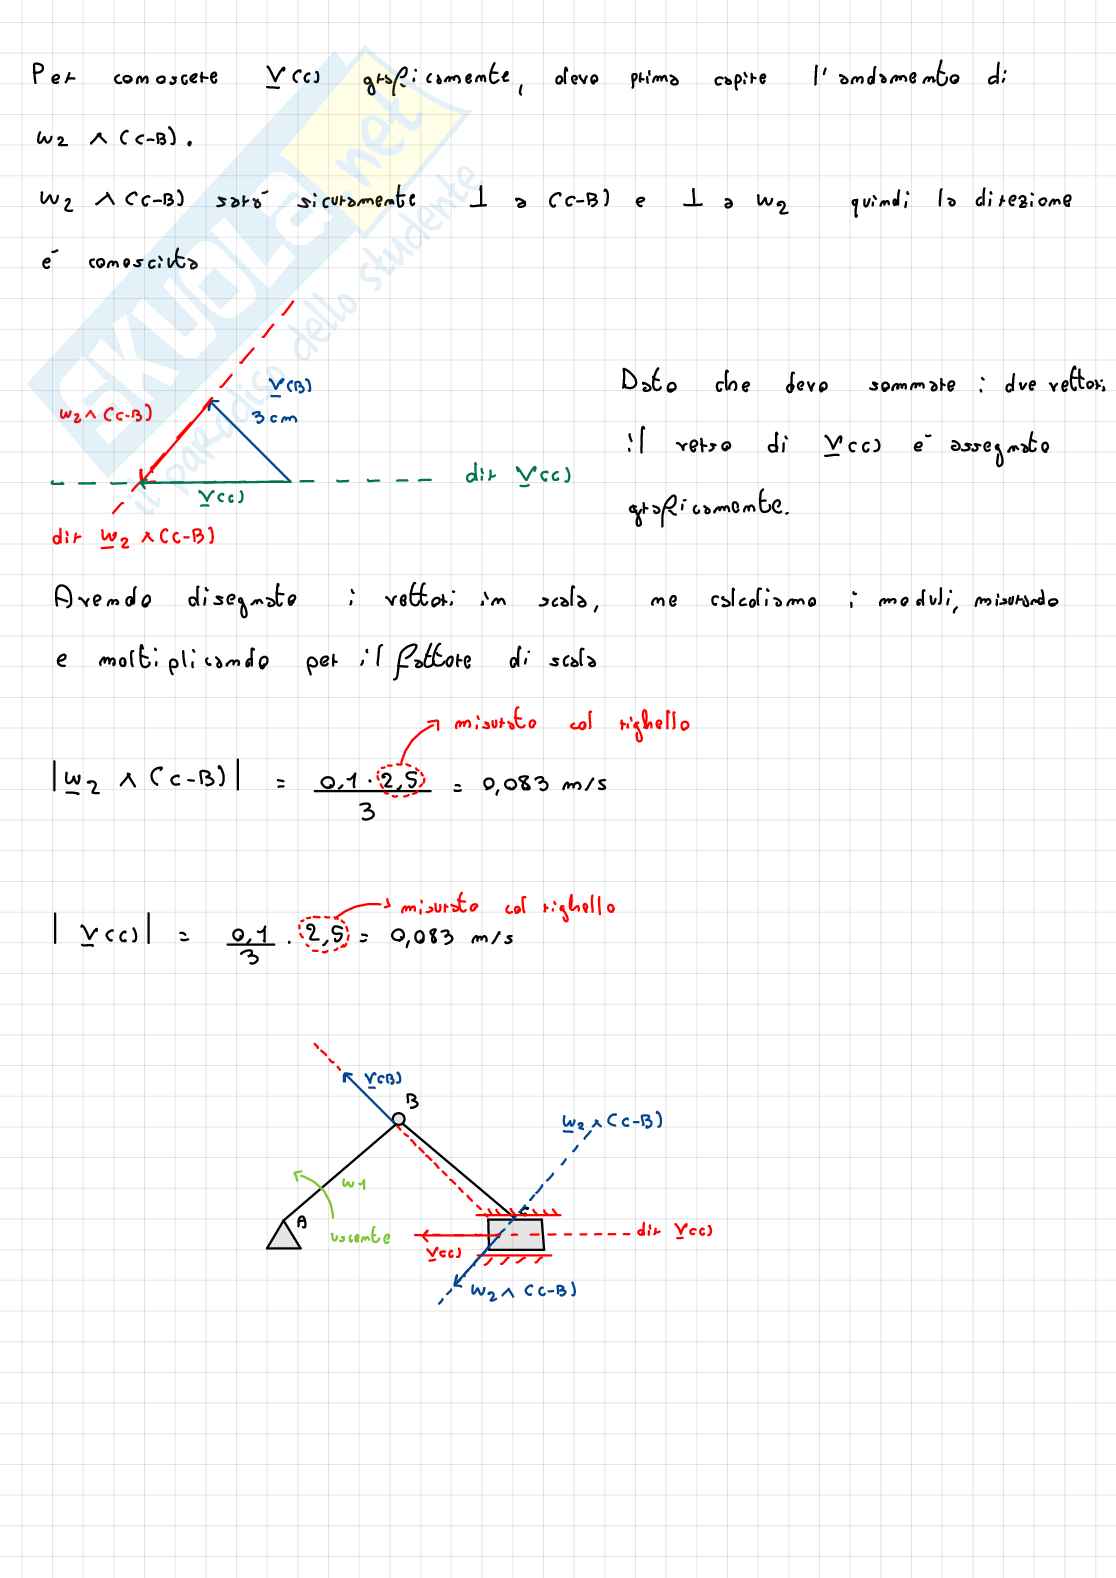 Per conoscere V(C) graficamente, devo prima capire l'andamento di
w2 ∧ (C-B).
w2 ∧ (C-B) sarà sicuramente ⊥ a (C-B) e ⊥ a w2 quindi la direzione
è conosciuta
SKUOLA.net
il paradiso dello studente
V(B)
3 cm
w2 ∧ (C-B)
dir V(C)
V(C)
dir w2 ∧ (C-B)
Dato che devo sommare i due vettori
il verso di V(C) è assegnato
graficamente.
Avendo disegnato i vettori in scala, ne calcoliamo i moduli, misurando
e moltiplicando per il fattore di scala
misurato col righello
|w2 ∧ (C-B)| = 0,1 · 2,5 / 3 = 0,083 m/s
misurato col righello
|V(C)| = 0,1 / 3 · 2,5 = 0,083 m/s
V(B)
B
w2 ∧ (C-B)
w1
A
uscente
C
dir V(C)
V(C)
w2 ∧ (C-B)